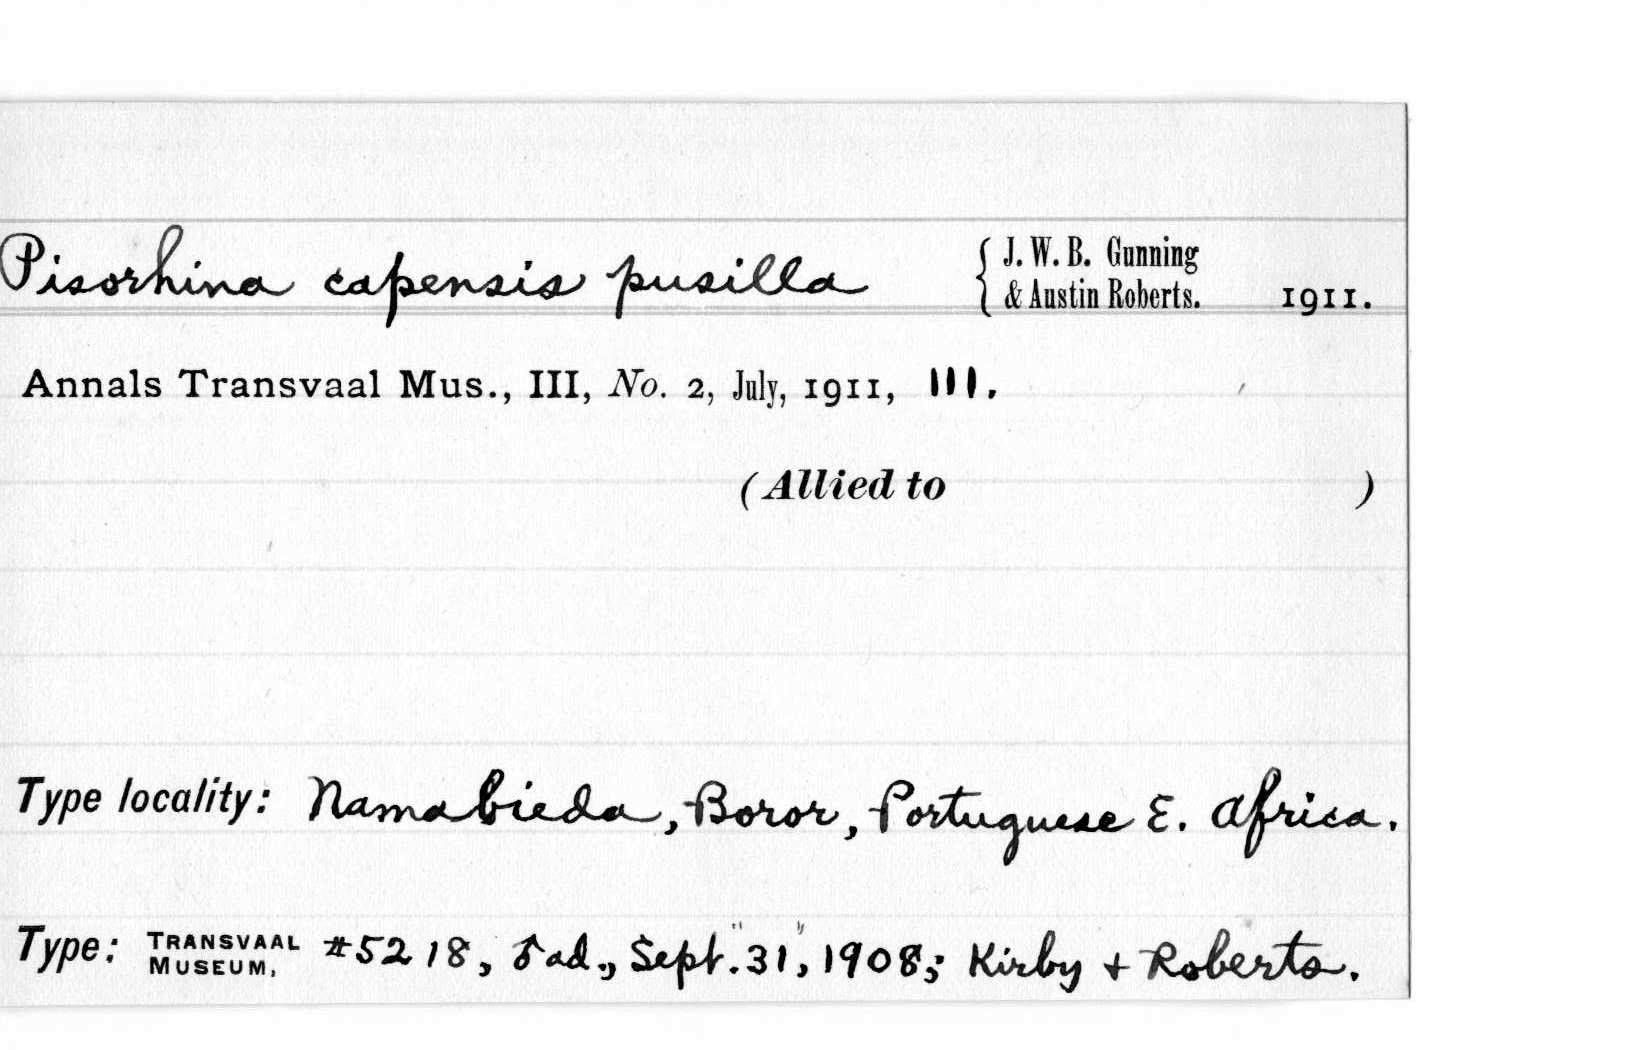 Pisorhina capensis pusilla { J. W. B. Gunning
& Austin Roberts. 1911.
Annals Transvaal Mus., III, No. 2, July, 1911, 111.
(Allied to )
Type locality: Namabieda, Boror, Portuguese E. Africa.
Type: TRANSVAAL MUSEUM, #5218, ♂ ad., Sept. "31", 1908; Kirby + Roberts.